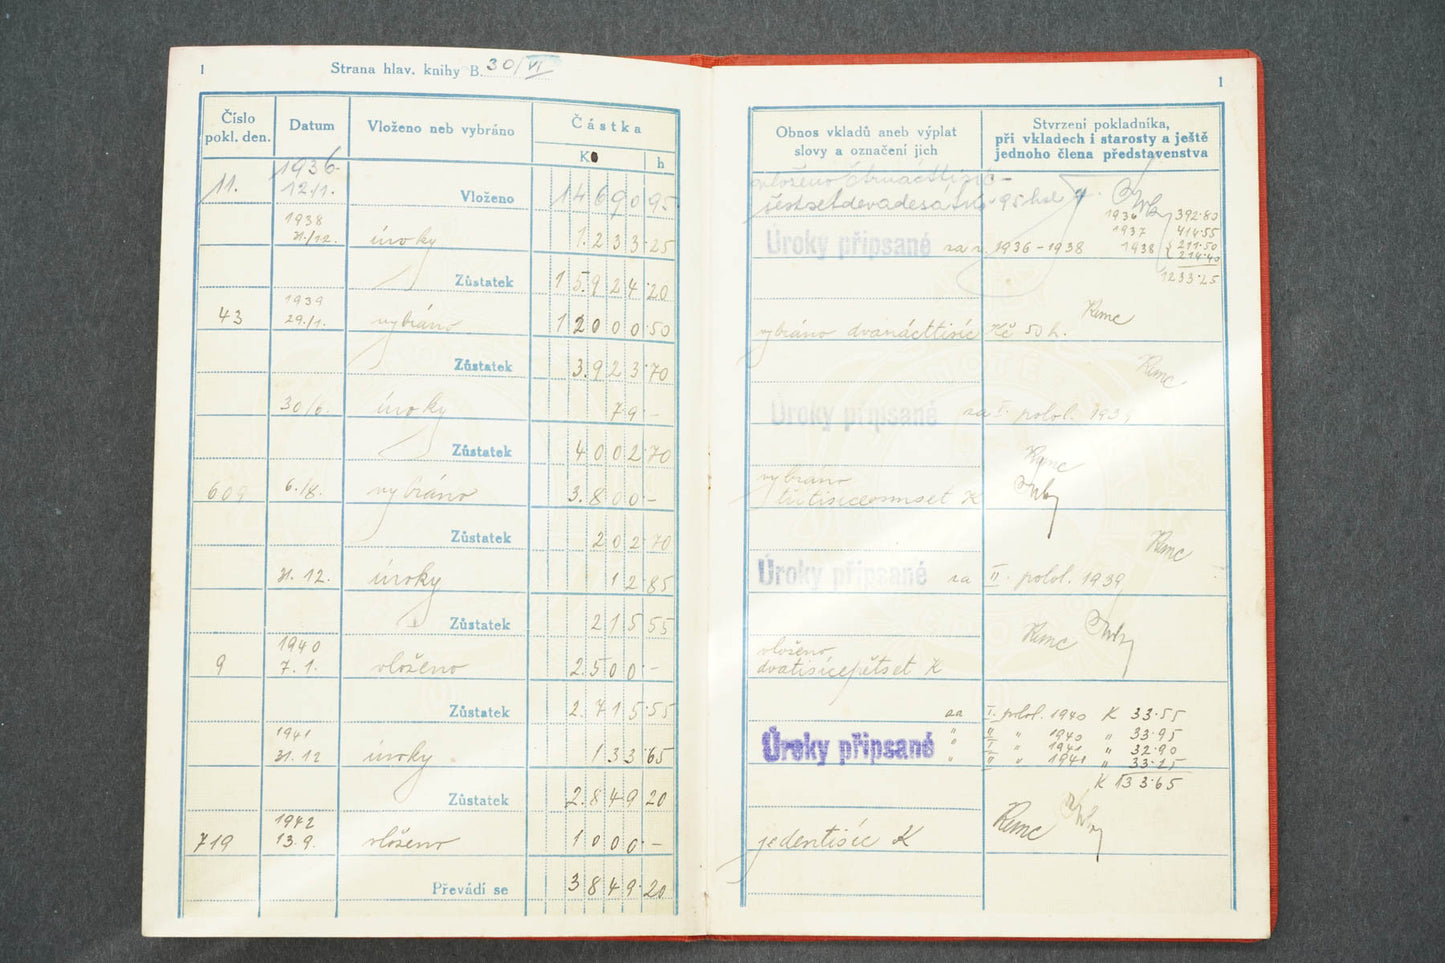 1
Strana hlav. knihy B. 30/VI
Číslo pokl. den.
Datum
Vloženo neb vybráno
Částka
K
h
11.
1936.
12./1.
Vloženo
14690 95
1938
31/12.
úroky
1.233.25
Zůstatek
15.924.20
43
1939
29./1.
vybráno
12000.50
Zůstatek
3.923.70
30/6.
úroky
79.-
Zůstatek
4002.70
609
6./8.
vybráno
3.800.-
Zůstatek
202.70
31. 12.
úroky
12.85
Zůstatek
215.55
9
1940
7. 1.
vloženo
2.500.-
Zůstatek
2.715.55
1941
31. 12
úroky
133.65
Zůstatek
2.849.20
719
1942
13. 9.
vloženo
1000.-
Převádí se
3849.20
1
Obnos vkladů aneb výplat
slovy a označení jich
Stvrzení pokladníka,
při vkladech i starosty a ještě
jednoho člena představenstva
vloženo čtrnácttisíc-
šestsetdevadesát Kč 95 hal
Úroky připsané za r. 1936-1938
1936 392.80
1937 414.55
1938 { 211.50
214.40
1233.25
vybráno dvanácttisíc Kč 50 h.
Úroky připsané za I. polol. 1939
vybráno
třitisíceosmset K
Úroky připsané za II. polol. 1939
vloženo
dvatisícepětset K
za I. polol. 1940 K 33.55
" II " 1940 " 33.95
Úroky připsané " I " 1941 " 32.90
" II " 1941 " 33.25
K 133.65
jedentisíc K